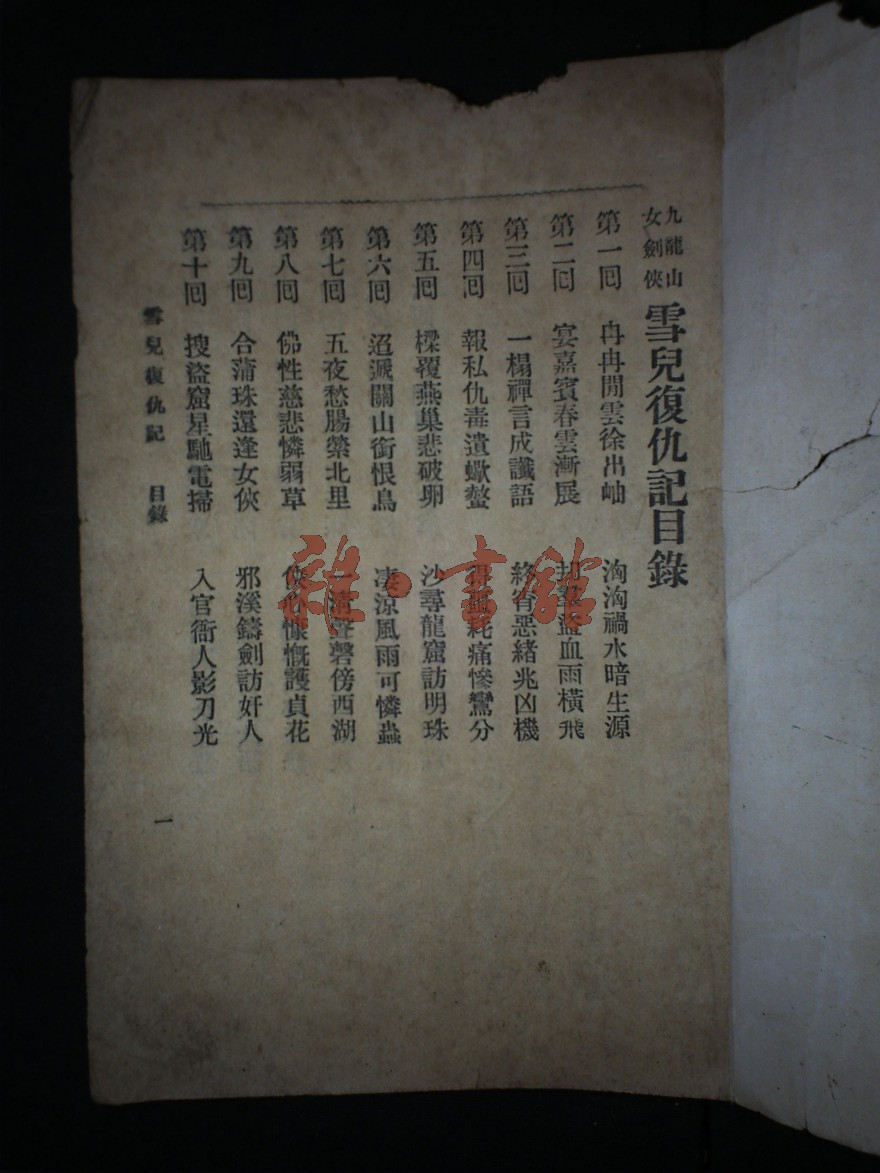 九龍山
女劍俠
雪兒復仇記目錄
第一囘 冉冉閒雲徐出岫 洶洶禍水暗生源
第二囘 宴嘉賓春雲漸展 盜血雨橫飛
第三囘 一榻禪言成讖語 終宵惡緒兆凶機
第四囘 報私仇毒遺蠍螫 耗痛慘鸞分
第五囘 樑覆燕巢悲破卵 沙尋龍窟訪明珠
第六囘 迢遞關山銜恨鳥 凄涼風雨可憐蟲
第七囘 五夜愁腸縈北里 一清聲磬傍西湖
第八囘 佛性慈悲憐弱草 俠心慷慨護貞花
第九囘 合蒲珠還逢女俠 邪溪鑄劍訪奸人
第十囘 搜盜窟星馳電掃 入官衙人影刀光
雪兒復仇記 目錄
一
雜·書館